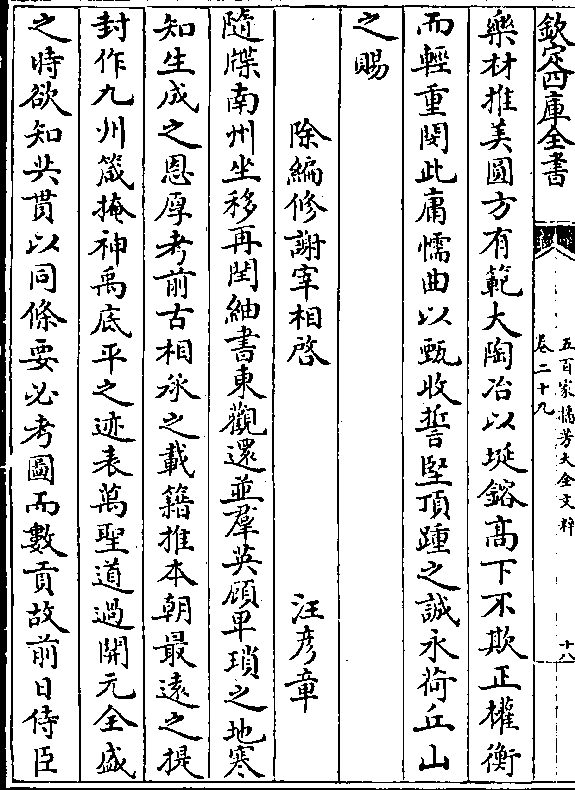 欽定四庫全書
五百家播芳大全文粹
卷二十九
十八
樂材推美圓方有範大陶冶以埏鎔高下不欺正權衡
而輕重閔此庸懦曲以甄收誓堅頂踵之誠永荷丘山
之賜
除編修謝宰相啓
汪彦章
隨牒南州坐移再閏紬書東觀還並羣英顧單瑣之地寒
知生成之恩厚考前古相承之載籍推本朝最遠之提
封作九州箴掩神禹底平之迹表萬聖道過開元全盛
之時欲知共貫以同條要必考圖而數貢故前日侍臣